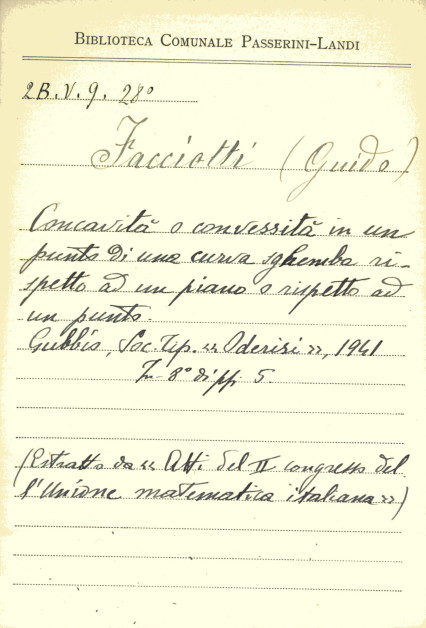 BIBLIOTECA COMUNALE PASSERINI-LANDI
2B.V.9. 28°
Facciotti (Guido)
Concavità o convessità in un
punto di una curva sghemba ri-
spetto ad un piano o rispetto ad
un punto.
Gubbio, Soc. Tip. "Oderisi", 1941
In-8° di pp. 5.
(Estratto da "Atti del II congresso del-
l'Unione matematica italiana")